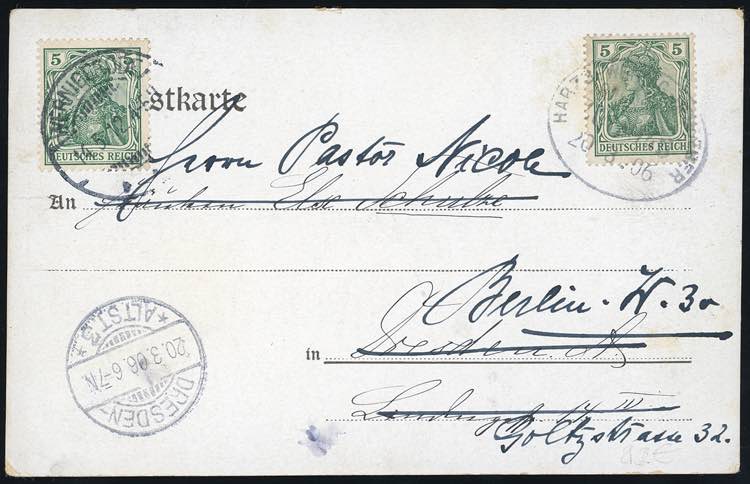 5 5
DEUTSCHES REICH
DEUTSCHES REICH
HARZ
20 06
Postkarte
Herrn Pastor Nicol
An Fräulein Else Schulze
Berlin. W. 30
in Dresden A
III
Goltzstrasse 32.
DRESDEN-
*ALTST.3*
20.3.06.6-7N.